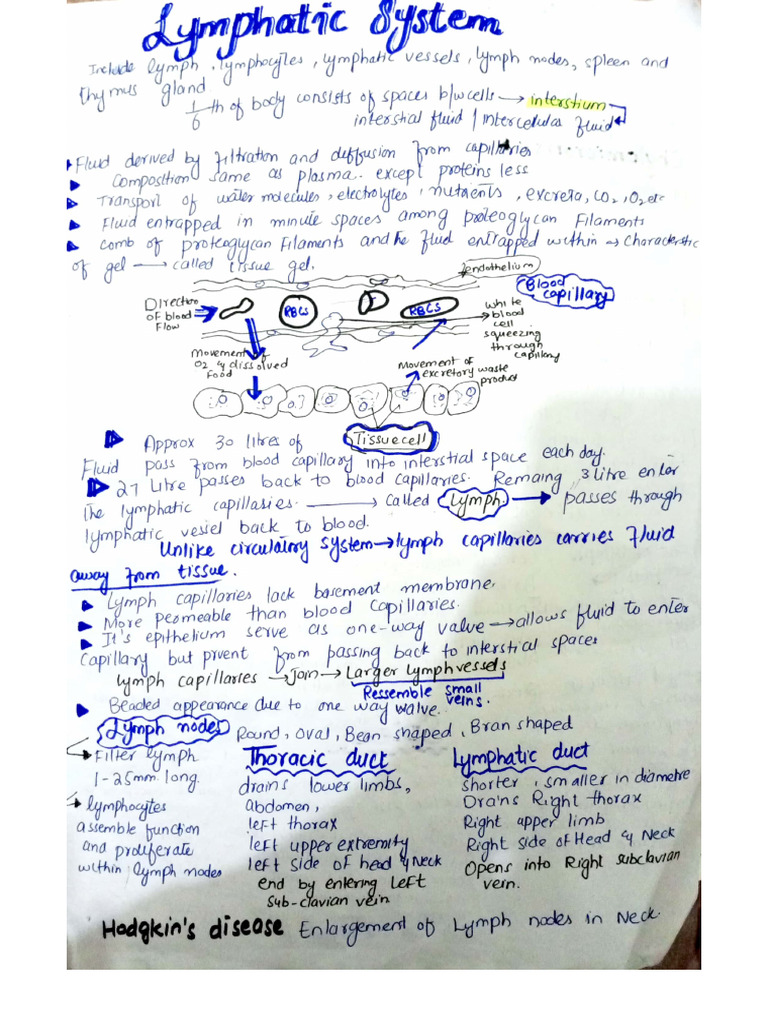 Lymphatic System
Include lymph, lymphocytes, lymphatic vessels, lymph nodes, spleen and
thymus gland.
1/6 th of body consists of spaces b/w cells → interstium
interstial fluid / Intercelular fluid
Fluid derived by filtration and diffusion from capillaries
Composition same as plasma. except proteins less
Transport of water molecules, electrolytes, nutrients, excreta, CO2, O2 etc
Fluid entrapped in minute spaces among proteoglycan Filaments
comb of proteoglycan Filaments and the fluid entrapped within → characterstic
of gel → called tissue gel.
endothelium
Blood capillary
Direction of blood Flow
RBCs
RBCs
white blood cell squeezing through capillary
Movement of O2 & dissolved Food
Movement of excretory waste product
Tissue cell
Approx 30 litres of
Fluid pass from blood capillary into interstial space each day.
27 Litre passes back to blood capillaries. Remaing 3 litre enter
the lymphatic capillasies. → called Lymph → passes through
lymphatic vessel back to blood.
Unlike circulatory system → lymph capillaries carries Fluid
away from tissue.
Lymph capillaries lack basement membrane.
More peomeable than blood capillaries.
It's epithelium serve as one-way valve → allows fluid to enter
capillary but prvent from passing back to interstial space.
lymph capillaries → Join → Larger lymph vessels
Ressemble small veins.
Beaded appearance due to one way walve.
Lymph nodes Round, Oval, Bean shaped, Bran shaped
Filter lymph
1-25mm long.
lymphocytes
assemble function
and proliferate
within lymph nodes
Thoracic duct
drains lower limbs,
abdomen,
left thorax
left upper extremity
left side of head & Neck
end by entering Left
sub-clavian vein
Lymphatic duct
shorter, smaller in diametre
Drains Right thorax
Right upper limb
Right side of Head & Neck
Opens into Right subclavian
vein.
Hodgkin's disease Enlargement of Lymph nodes in Neck.